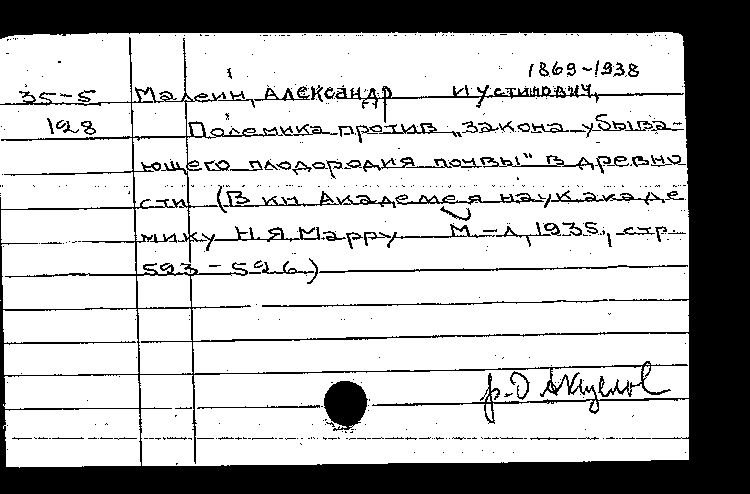 1869-1938
35-5 Малеин, Александр Иустинович,
128 Полемика против „закона убыва-
ющего плодородия почвы" в древно
сти (В кн. Академея наук акаде
мику Н.Я.Марру М.-Л, 1935, стр.
593-596.)